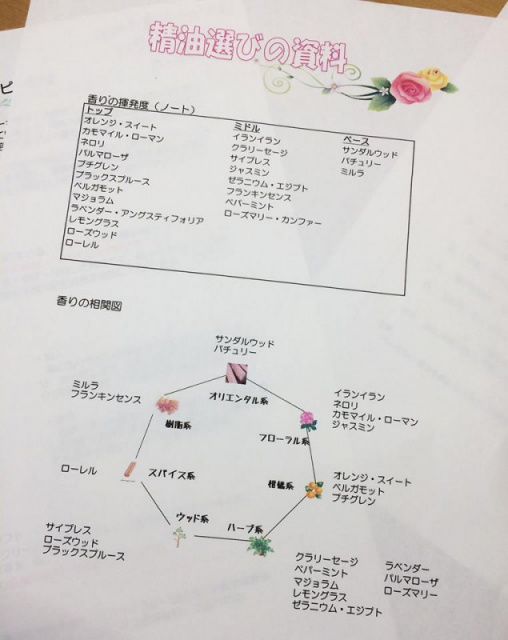 精油選びの資料
香りの揮発度（ノート）
トップ
オレンジ・スイート
カモマイル・ローマン
ネロリ
パルマローザ
プチグレン
ブラックスプルース
ベルガモット
マジョラム
ラベンダー・アングスティフォリア
レモングラス
ローズウッド
ローレル
ミドル
イランイラン
クラリーセージ
サイプレス
ジャスミン
ゼラニウム・エジプト
フランキンセンス
ペパーミント
ローズマリー・カンファー
ベース
サンダルウッド
パチュリー
ミルラ
香りの相関図
サンダルウッド
パチュリー
オリエンタル系
ミルラ
フランキンセンス
樹脂系
イランイラン
ネロリ
カモマイル・ローマン
ジャスミン
フローラル系
ローレル
スパイス系
柑橘系
オレンジ・スイート
ベルガモット
プチグレン
ウッド系
ハーブ系
サイプレス
ローズウッド
ブラックスプルース
クラリーセージ
ペパーミント
マジョラム
レモングラス
ゼラニウム・エジプト
ラベンダー
パルマローザ
ローズマリー